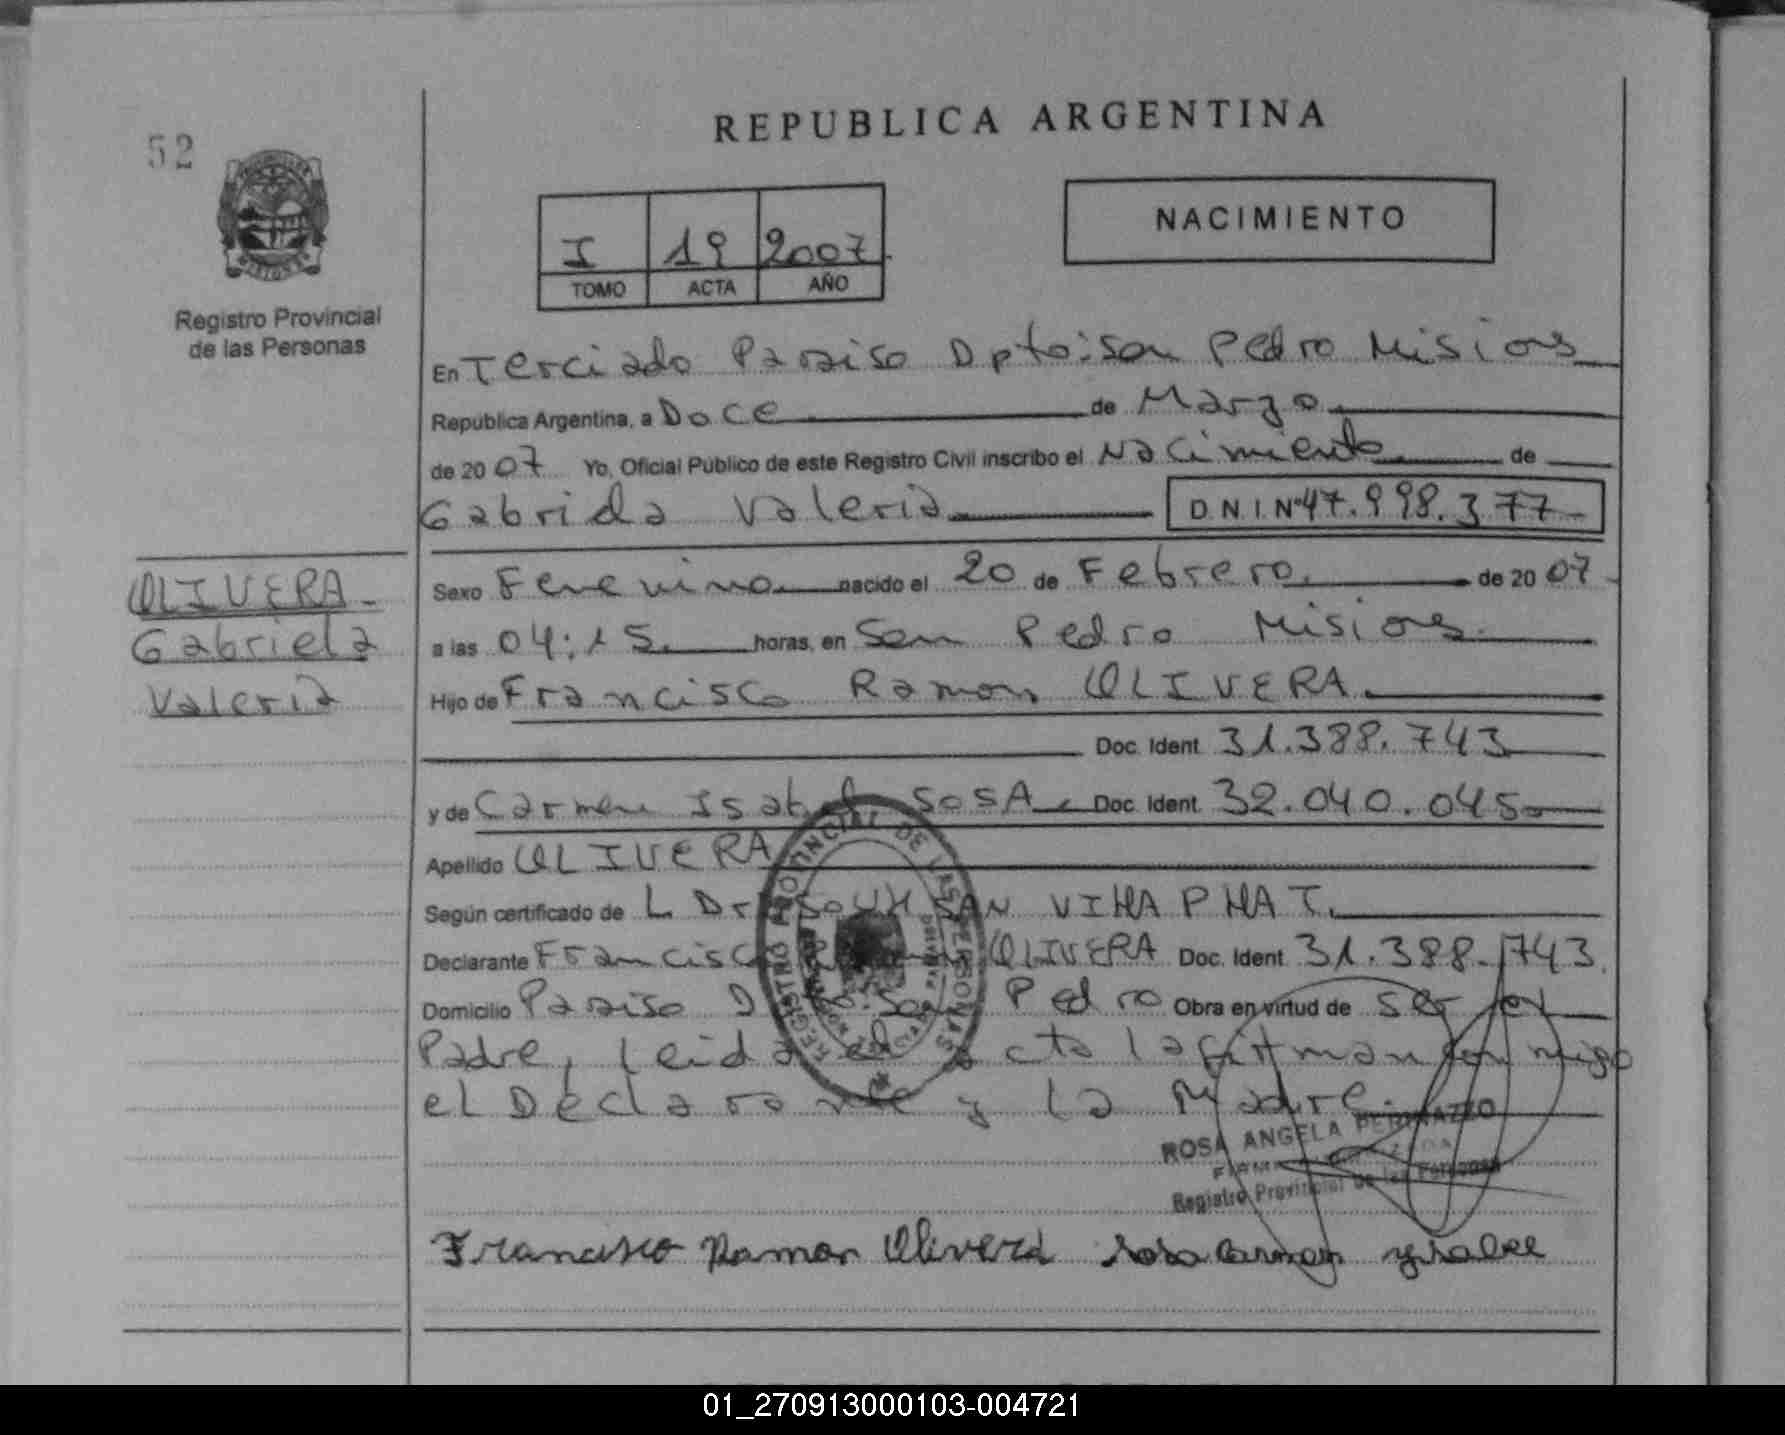 52
REPUBLICA ARGENTINA
NACIMIENTO
I 19 2007
TOMO ACTA AÑO
Registro Provincial
de las Personas
En Terciado Paraiso Dpto: San Pedro Misiones
República Argentina, a Doce de Marzo
de 2007 Yo, Oficial Público de este Registro Civil inscribo el Nacimiento de
Gabriela Valeria D.N.I. Nº 47.998.377
OLIVERA
Gabriela
Valeria
Sexo Femenino nacido el 20 de Febrero de 2007
a las 04:15 horas, en San Pedro Misiones
Hijo de Francisco Ramon OLIVERA
Doc. Ident. 31.388.743
y de Carmen Isabel SOSA Doc. Ident. 32.040.045
Apellido OLIVERA
Según certificado de L Dr SOUKSAN VIHAPHAT
Declarante Francisco OLIVERA Doc. Ident. 31.388.743
Domicilio Paraiso San Pedro Obra en virtud de ser el
Padre, Leida el acta la firman conmigo
el Declarante y la Madre
REGISTRO PROVINCIAL DE LAS PERSONAS
ROSA ANGELA
Registro Provincial de las Personas
Francisco Ramon Olivera Sosa Carmen ysabel
01_270913000103-004721